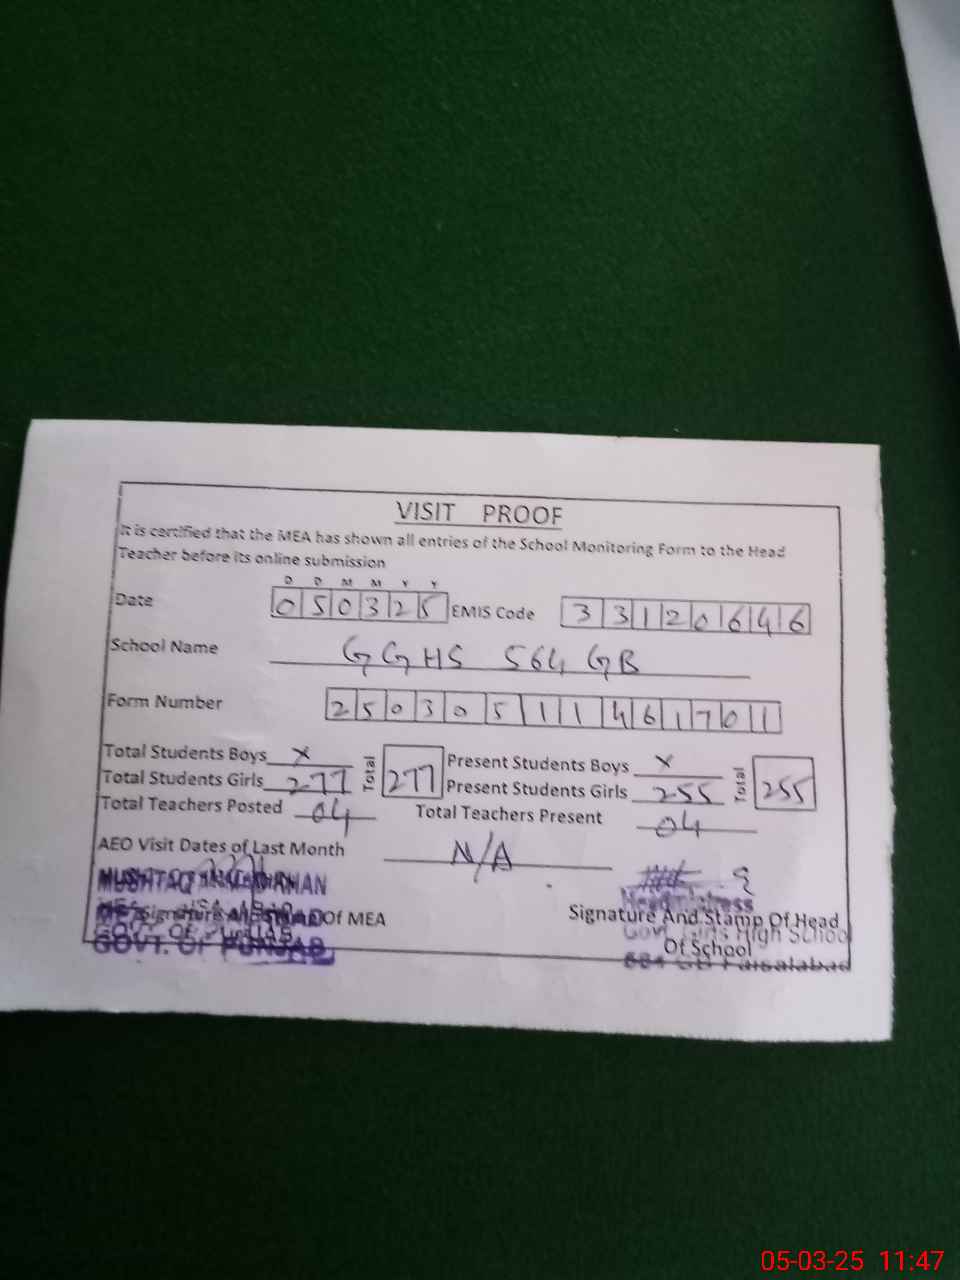 VISIT PROOF
It is certified that the MEA has shown all entries of the School Monitoring Form to the Head
Teacher before its online submission
D D M M Y Y
Date 050325 EMIS Code 33120646
School Name GGHS 564 GB
Form Number 250305111461701
Total Students Boys x Total 277 Present Students Boys x Total 255
Total Students Girls 277 Present Students Girls 255
Total Teachers Posted 04 Total Teachers Present 04
AEO Visit Dates of Last Month N/A
Headmistress
Signature And Of MEA Signature And Stamp Of Head
GOVT. OF PUNJAB Govt. Girls High School
Of School
GB Faisalabad
05-03-25 11:47